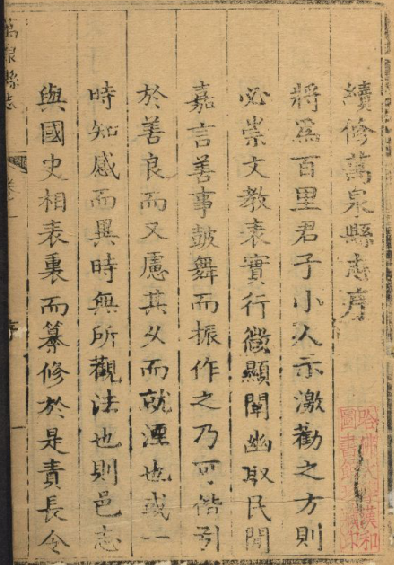 續修萬泉縣志序
將爲百里君子小人示激勸之方則
必崇文教表實行微顯闡幽取民間
嘉言善事鼓舞而振作之乃可偕引
於善良而又慮其久而就湮也或一
時知感而異時無所觀法也則邑志
與國史相表裏而纂修於是責長令
萬泉縣志
卷一
序
哈佛大學漢和
圖書館珍藏印